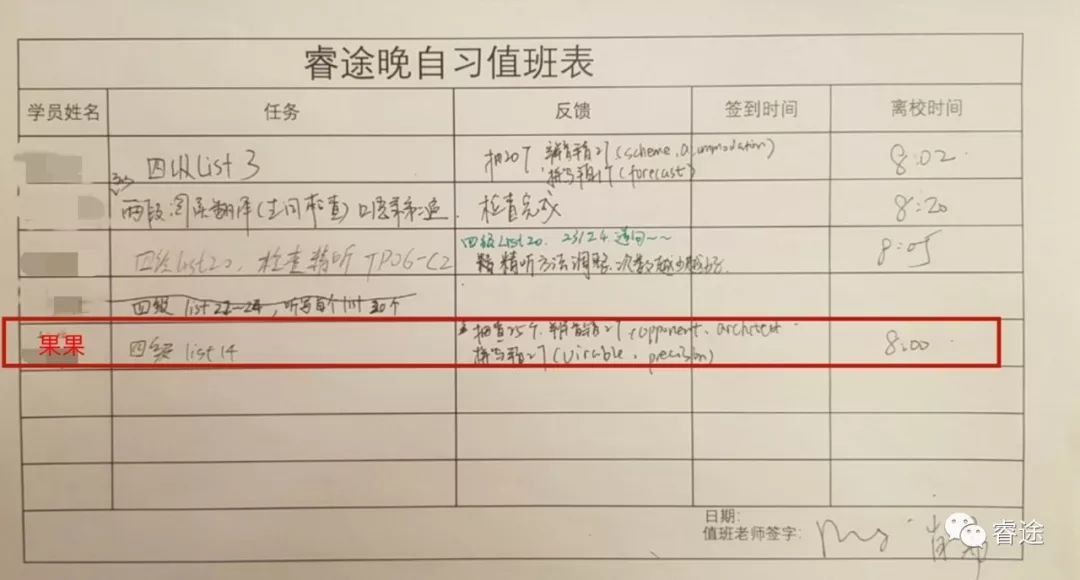 睿途晚自习值班表
学员姓名 任务 反馈 签到时间 离校时间
四级 list 3 抽20个 辨音错2个(scheme, accommodation) 8:02
拼写错1个(forecast)
检查完成 8:20
四级list20, 检查精听 TPO6-C2 四级list20. 23/24 8:05
精听方法调整.次数越少越好.
四级 list 22-24, 听写每个list 30个
果果 四级 list 14 抽查25个, 辨音错2个(opponent, architect 8:00
拼写错2个(virable, precision)
日期:
值班老师签字:
睿途